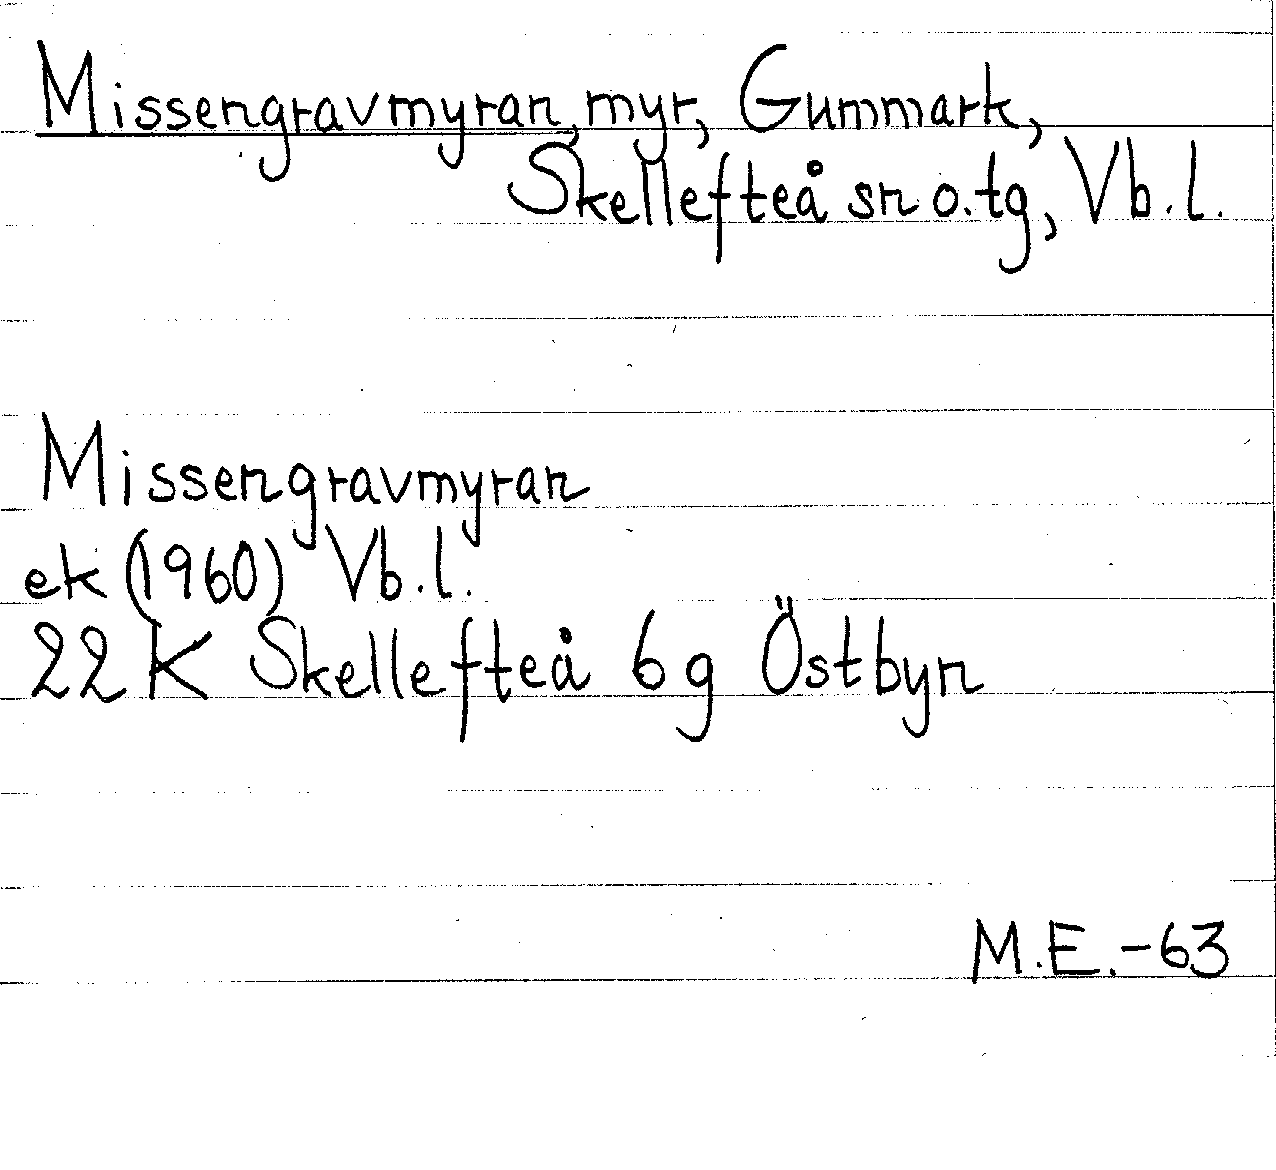 Missengravmyran, myr, Gummark,
Skellefteå sn o. tg, Vb. l.
Missengravmyran
ek (1960) Vb. l.
22 K Skellefteå 6 g Östbyn
M.E. -63